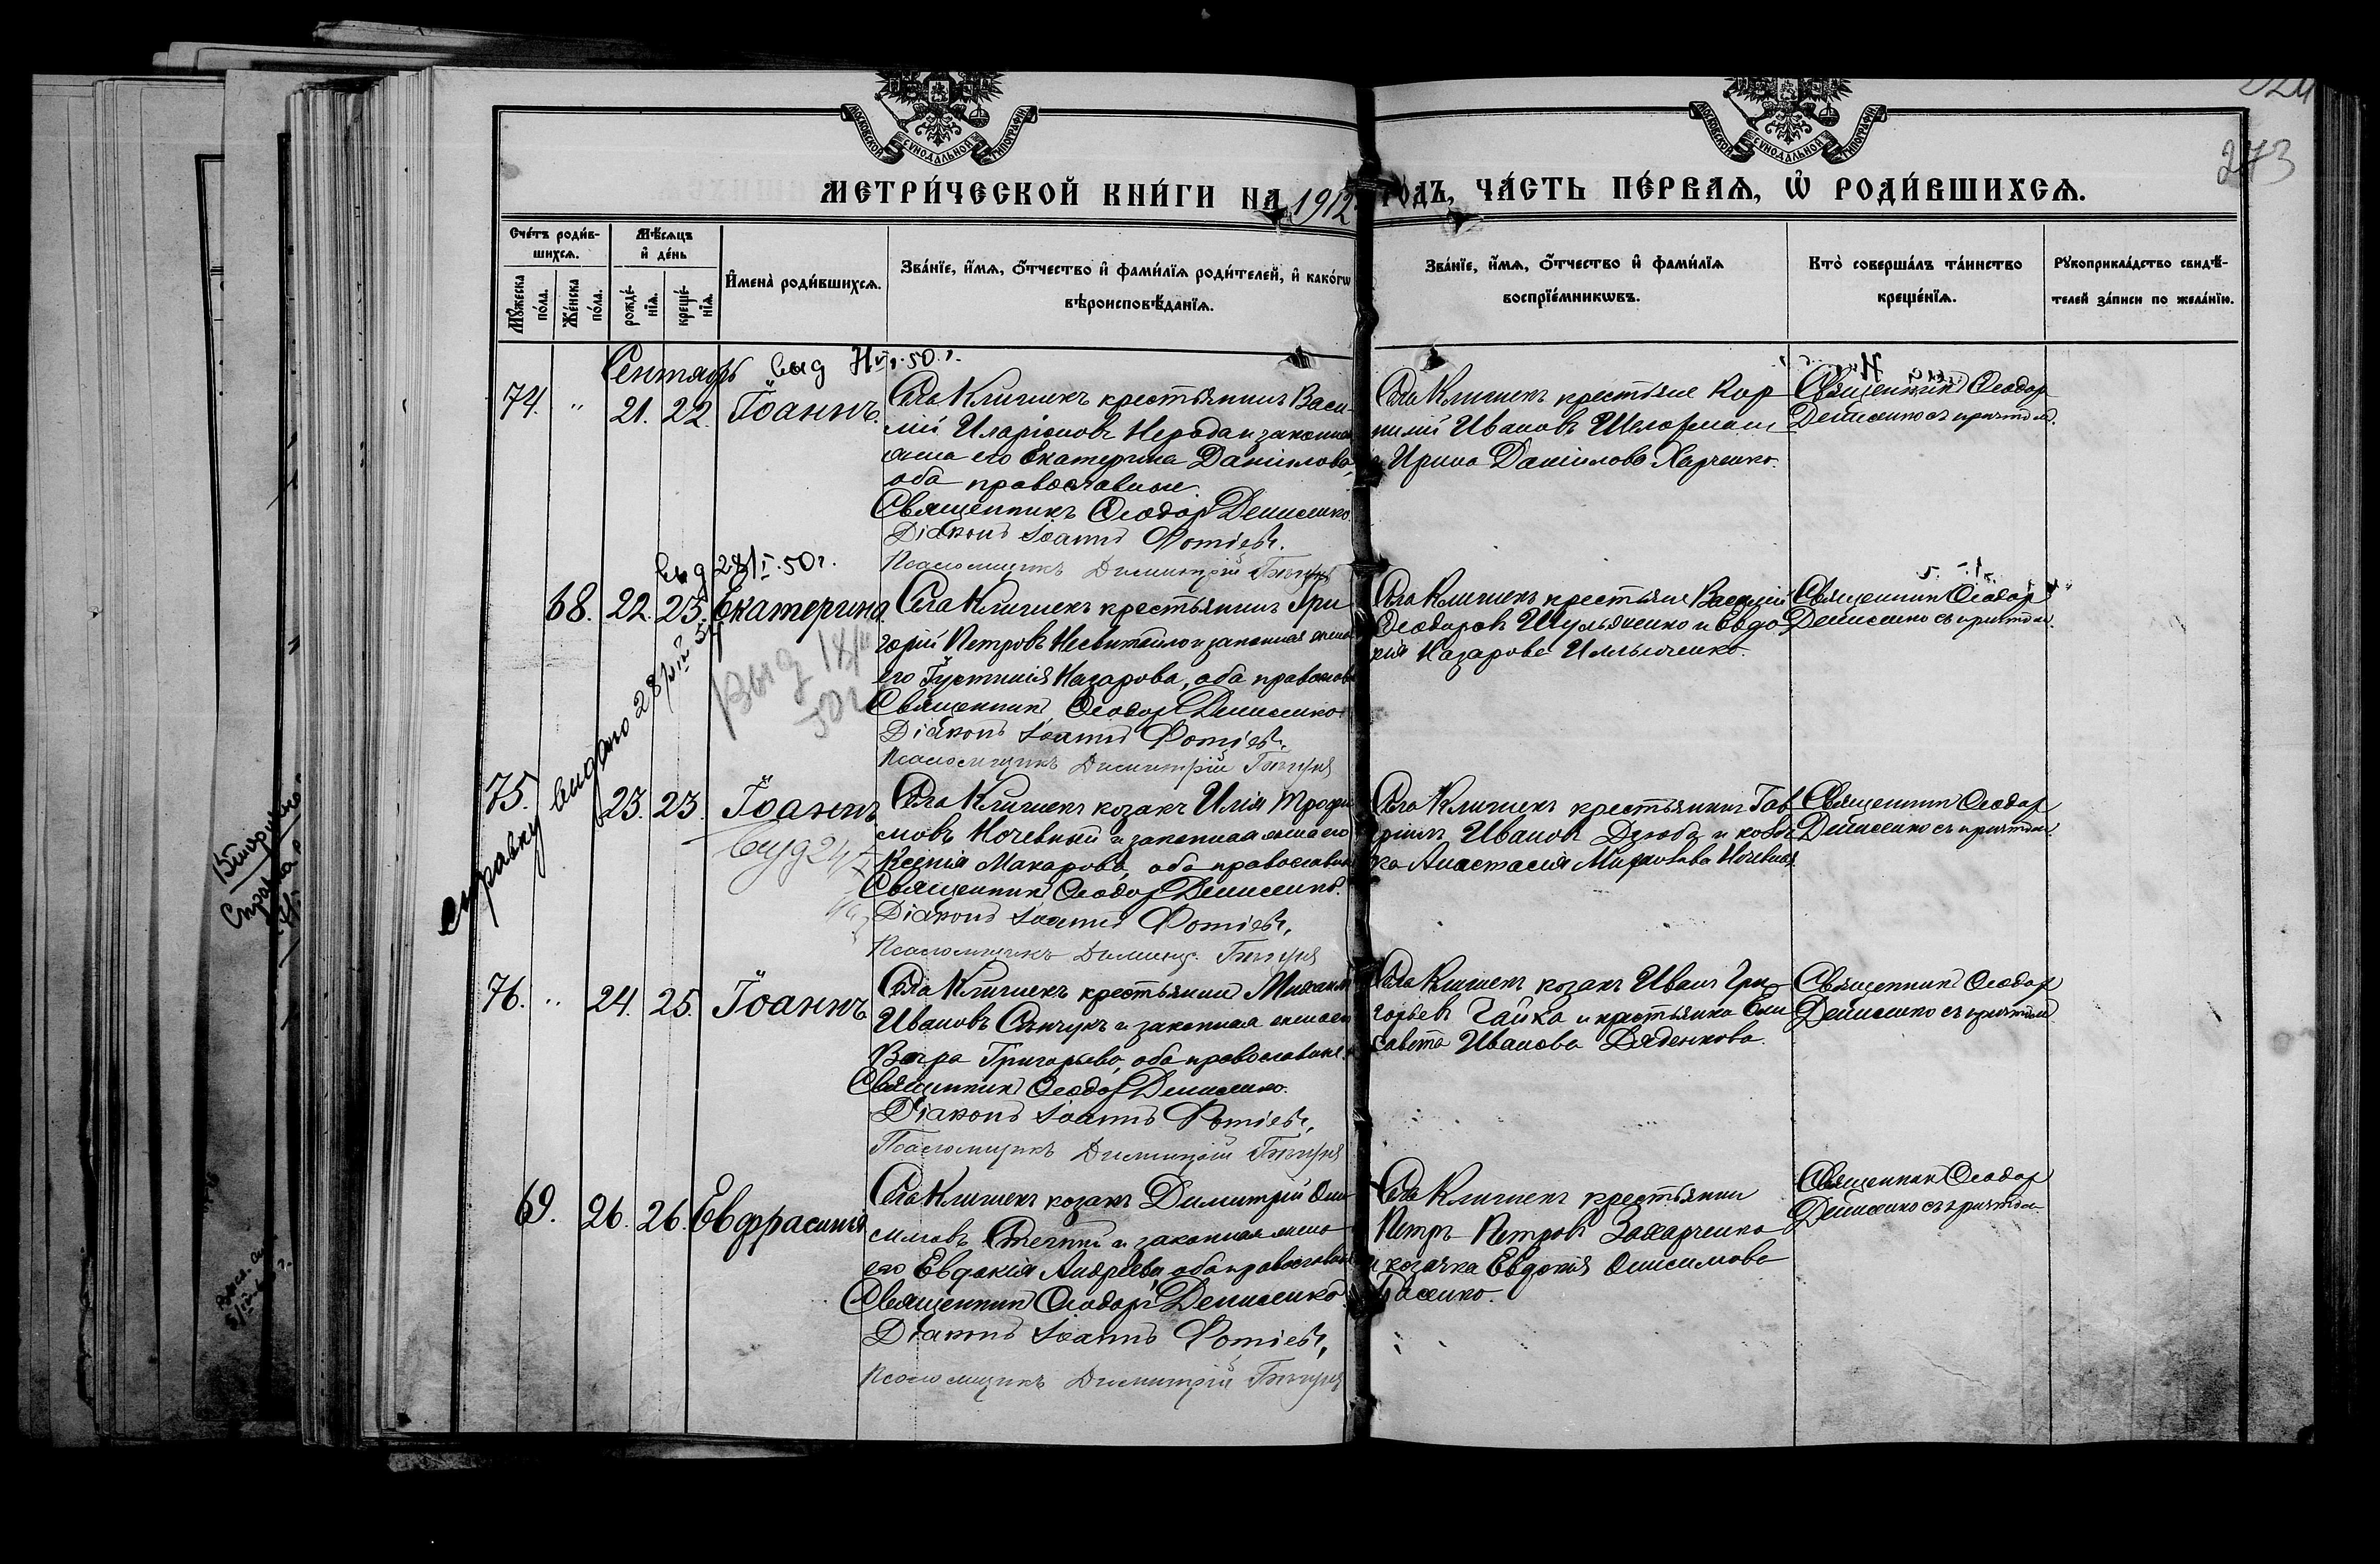 МОСКОВСКОЙ СѴНОДАЛЬНОЙ ТИПОГРАФІИ
МОСКОВСКОЙ СѴНОДАЛЬНОЙ ТИПОГРАФІИ
273
МЕТРИ́ЧЕСКОЙ КНИ́ГИ НА 1912 ГОДЪ, ЧА́СТЬ ПЕ́РВАѦ, Ѡ РОДИ́ВШИХСѦ.
Сче́тъ роди́в-
шихсѧ.
Мꙋ́жеска по́ла.
Же́нска по́ла.
Мѣ́сѧцъ
и҆ де́нь
рожде́-
нїѧ.
креще́-
нїѧ.
И҆мена̀ роди́вшихсѧ.
Зва́нїе, и҆́мѧ, ѻ҆́тчество и҆ фами́лїѧ роди́телей, и҆ како́гѡ
вѣроисповѣ́данїѧ.
Зва́нїе, и҆́мѧ, ѻ҆́тчество и҆ фами́лїѧ
воспрїе́мникѡвъ.
Кто̀ соверша́лъ та́инство
креще́нїѧ.
Рꙋкоприкла́дство свидѣ́-
телей за́писи по жела́нїю.
Сентябрь выд 50 г.
74. " 21. 22. Іоаннъ.
Села Клишекъ крестьянинъ Васи-
лій Иларіоновъ и законная
жена его Екатерина Даніилова,
оба православные.
Священникъ Ѳеодоръ Денисенко
Діаконъ Іоаннъ Фотіевъ.
Псаломщикъ Димитрій
Села Клишекъ крестьяне Кор-
нилій Ивановъ
и Ирина Даніилова Харченко.
Священникъ Ѳеодоръ
Денисенко съ причтомъ.
выд 28/I.50 г.
68. 22. 23. Екатерина.
Села Клишекъ крестьянинъ Гри
горій Петровъ Несвитайло и законная жена
его Іустинія Назарова, оба православ
Священникъ Ѳеодоръ Денисенко
Діаконъ Іоаннъ Фотіевъ.
Псаломщикъ Димитрій
Села Клишекъ крестьяне Василий
Ѳеодоровъ и Евдо
кія Назарова
Священникъ Ѳеодоръ
Денисенко съ причтомъ.
выд
50 г
справку выдано 28
75. 23. 23. Іоаннъ.
выд 24
Села Клишекъ козакъ Илія Трофи
мовъ Ночевный и законная жена его
Ксенія Макарова, оба православные
Священникъ Ѳеодоръ Денисенко.
Діаконъ Іоаннъ Фотіевъ.
Псаломщикъ Димитр.
Села Клишекъ крестьянинъ Гав
ріилъ Ивановъ Дзюба и козач
ка Анастасія Ночевная.
Священникъ Ѳеодоръ
Денисенко съ причтомъ
76. " 24. 25. Іоаннъ
Села Клишекъ крестьянинъ Михаилъ
Ивановъ Сенчукъ и законная жена его
Вѣра Григорьева, оба православные.
Священникъ Ѳеодоръ Денисенко.
Діаконъ Іоаннъ Фотіевъ.
Псаломщикъ Димитрій
Села Клишекъ козакъ Иванъ Гри
горьевъ Гайка и крестьянка Ели
савета Иванова Дяденкова.
Священникъ Ѳеодоръ
Денисенко съ причтомъ
69. 26. 26. Евфрасинія
Села Клишекъ козакъ Димитрій Они
симовъ и законная жена
его Евдокія Андреева, оба православные
Священникъ Ѳеодоръ Денисенко.
Діаконъ Іоаннъ Фотіевъ.
Псаломщикъ Димитрій
Села Клишекъ крестьянин
Петръ Петровъ Захарченко
и козачка Евдокія Онисимова
Священникъ Ѳеодоръ
Денисенко съ причтом